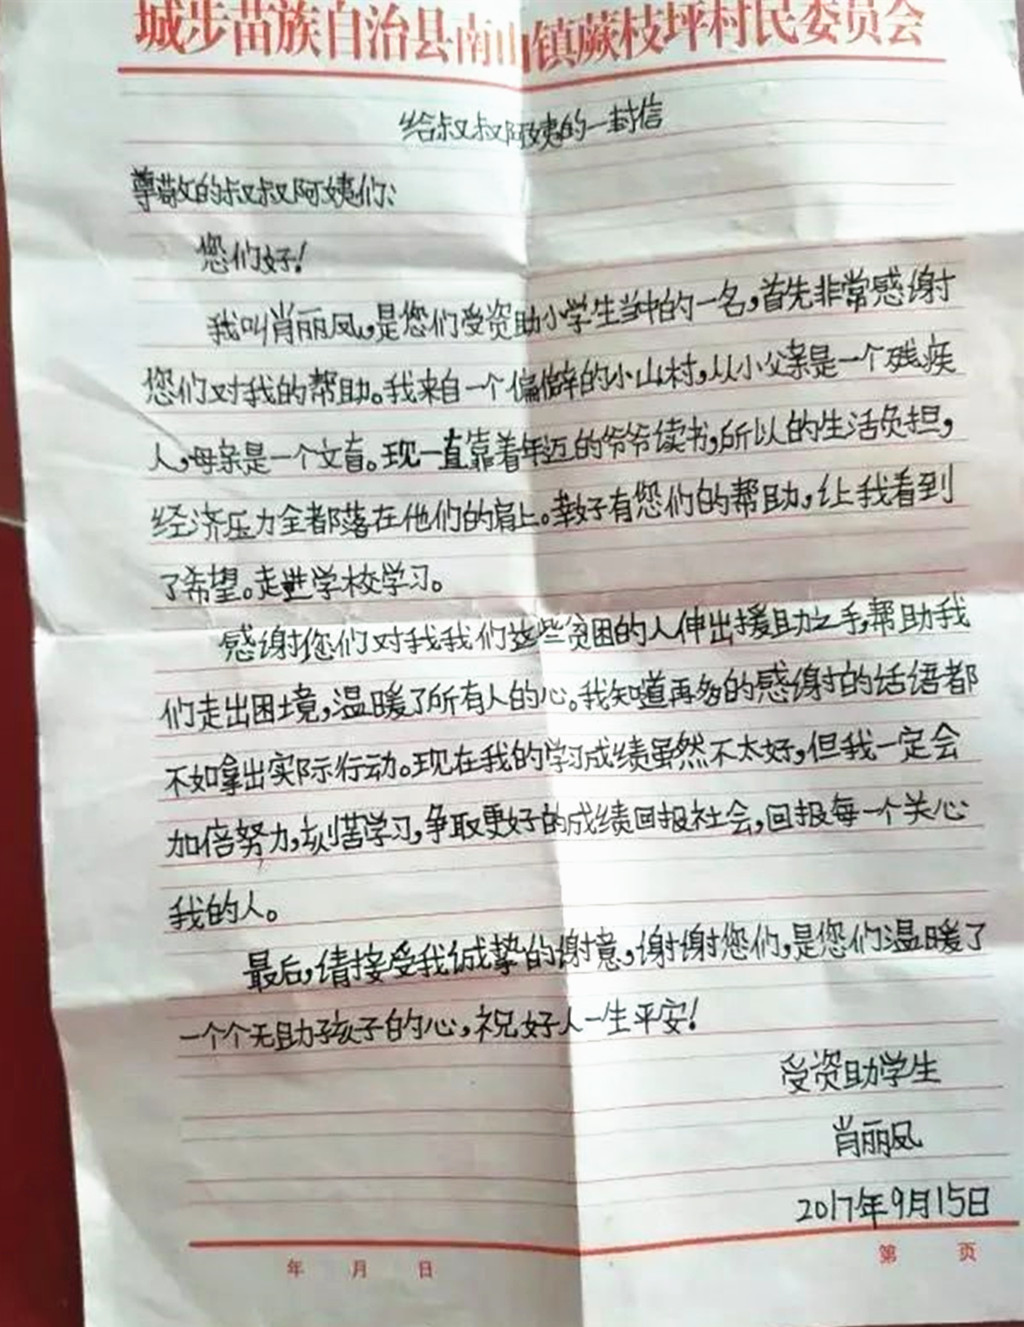 城步苗族自治县南山镇蕨枝坪村民委员会
给叔叔阿姨的一封信
尊敬的叔叔阿姨们：
您们好！
我叫肖丽凤，是您们受资助小学生当中的一名，首先非常感谢
您们对我的帮助。我来自一个偏僻的小山村，从小父亲是一个残疾
人，母亲是一个文盲。现一直靠着年迈的爷爷读书，所以的生活负担，
经济压力全都落在他们的肩上。幸好有您们的帮助，让我看到
了希望。走进学校学习。
感谢您们对我我们这些贫困的人伸出援助之手，帮助我
们走出困境，温暖了所有人的心。我知道再多的感谢的话语都
不如拿出实际行动。现在我的学习成绩虽然不太好，但我一定会
加倍努力，刻苦学习，争取更好的成绩回报社会，回报每一个关心
我的人。
最后，请接受我诚挚的谢意，谢谢您们，是您们温暖了
一个个无助孩子的心，祝好人一生平安！
受资助学生
肖丽凤
2017年9月15日
年 月 日 第 页